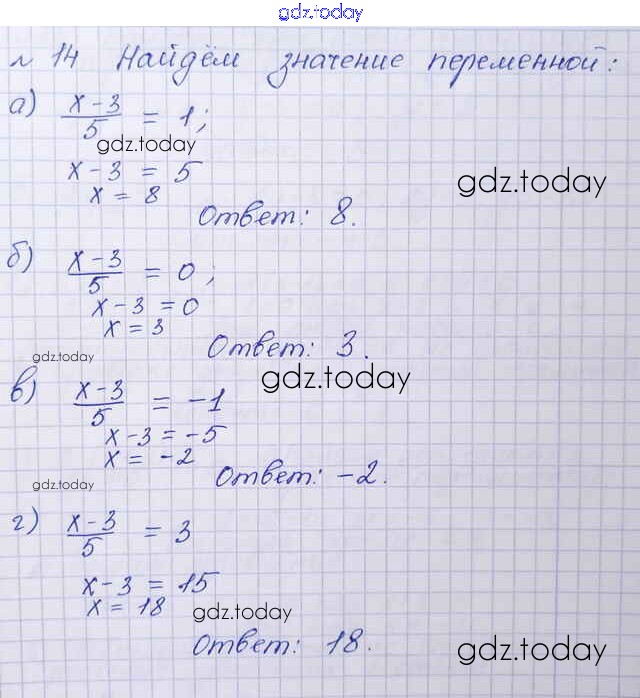 gdz.today
№ 14 Найдём значение переменной:
а) x-3/5 = 1;
gdz.today
x-3 = 5
gdz.today
x = 8
Ответ: 8.
б) x-3/5 = 0;
x-3 = 0
x = 3
Ответ: 3.
gdz.today
gdz.today
в) x-3/5 = -1
x-3 = -5
x = -2
Ответ: -2.
gdz.today
г) x-3/5 = 3
x-3 = 15
x = 18
gdz.today
Ответ: 18.
gdz.today